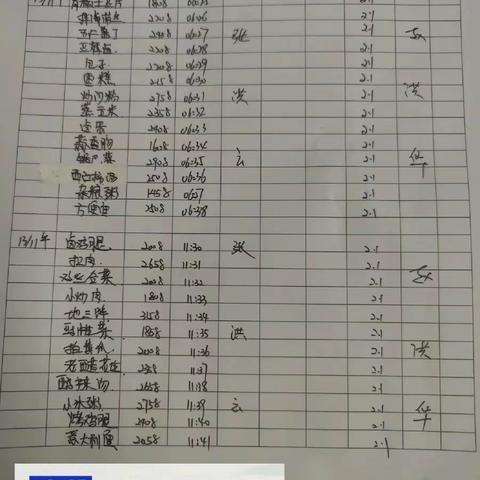 13/11 青椒土豆片 180g 06:25 2.1
220g 06:26 2.1
240g 06:27 张 2.1
220g 06:28 2.1
包子 220g 06:29 2.1
蛋糕 215g 06:30 2.1
275g 06:31 洪 2.1 洪
蒸玉米 235g 06:32 2.1
卤蛋 240g 06:33 2.1
160g 06:34 2.1
290g 06:35 云 2.1 华
250g 06:36 2.1
杂粮粥 145g 06:37 2.1
方便面 250g 06:38 2.1
13/11午 卤鸡腿 200g 11:30 张 2.1
扣肉 265g 11:31 2.1
200g 11:32 2.1
小炒肉 180g 11:33 2.1
地三鲜 315g 11:34 2.1
180g 11:35 洪 2.1
拍黄瓜 200g 11:36 2.1 洪
老醋花生 11:37 2.1
265g 11:38 2.1
小米粥 275g 11:39 云 2.1 华
烤鸡腿 240g 11:40 2.1
意大利面 205g 11:41 2.1